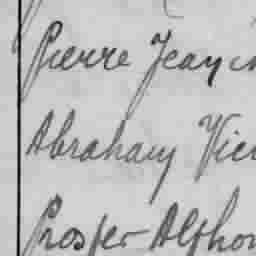 Pierre Jean
Abraham Vic
Prosper Alphon